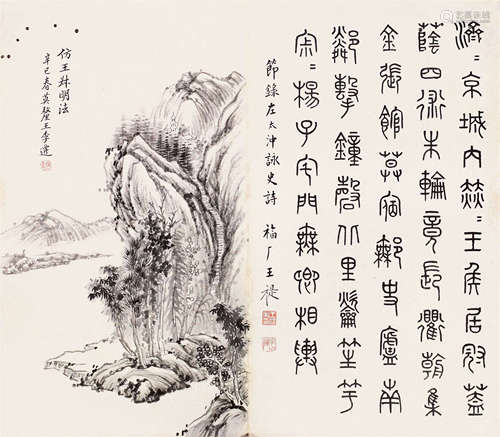 濟〻京城内赫〻王侯居冠蓋
蔭四術朱輪竟長衢朝集
金張館莫宿鄦史廬南
鄰擊鐘磬北里龡笙竽
宋〻楊子宅門無卿相輿
節錄左太沖詠史詩 福厂王禔
仿王叔明法
辛巳春莫釐王季遷